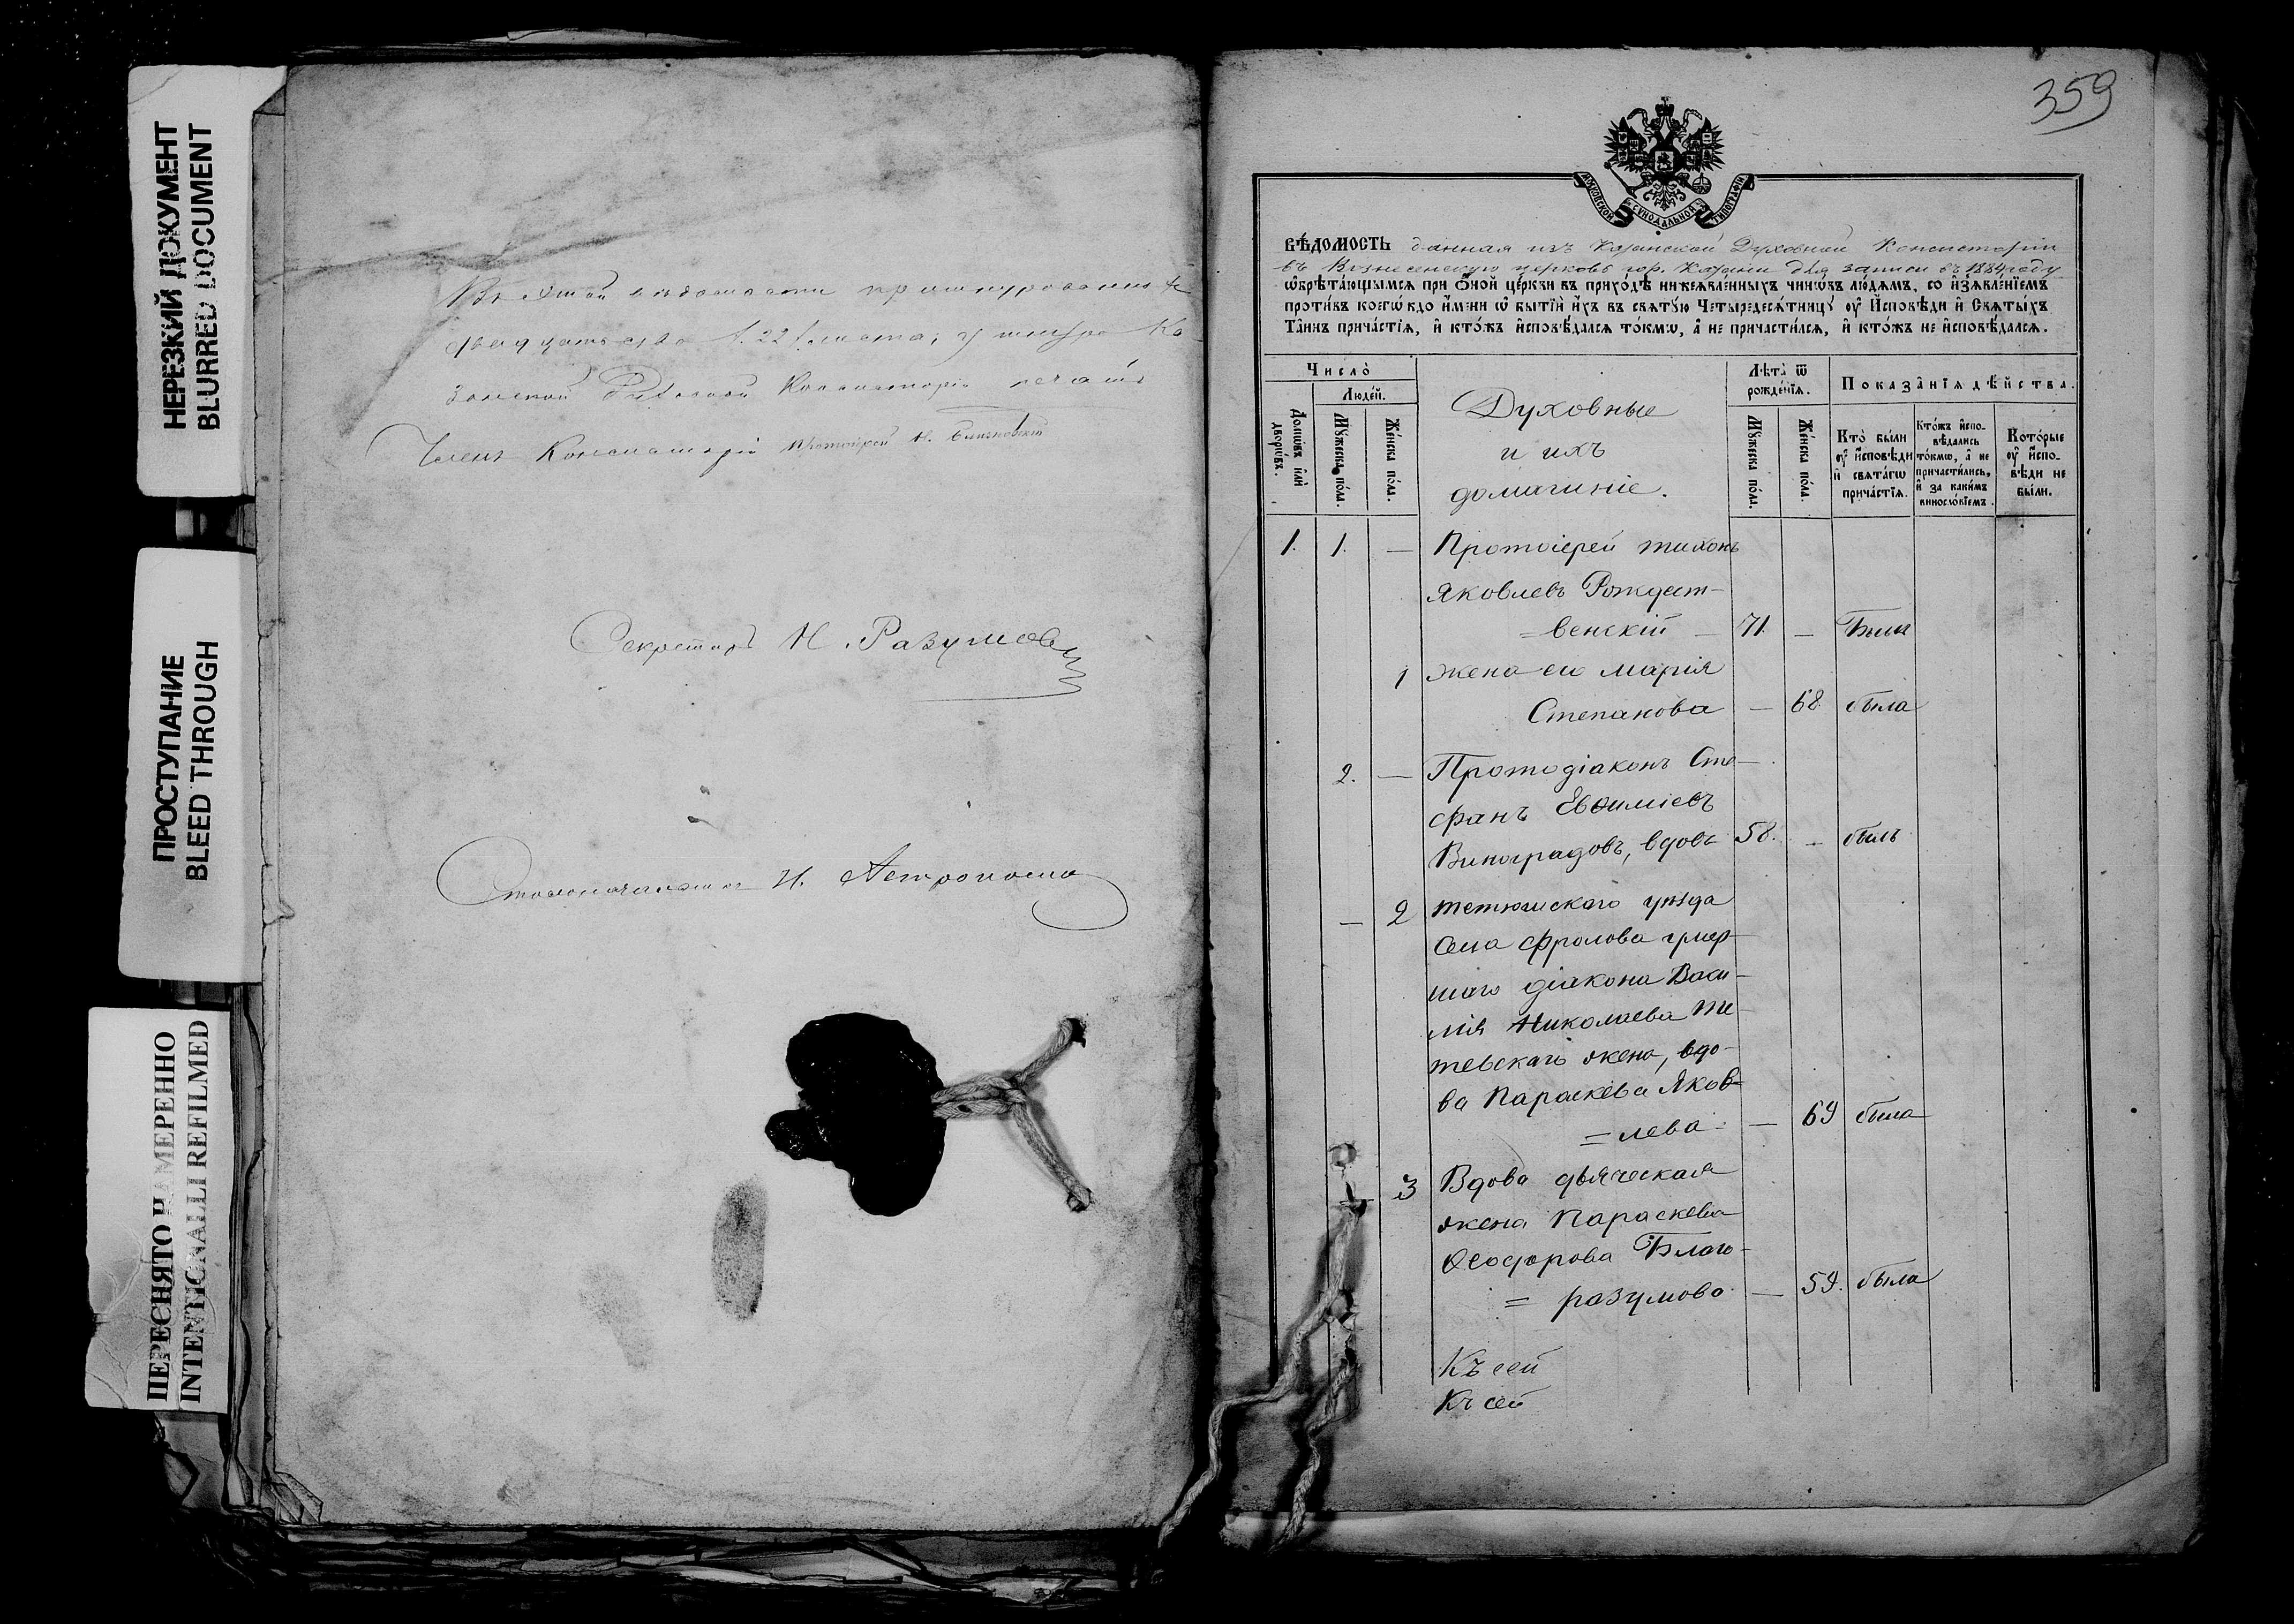 НЕРЕЗКИЙ ДОКУМЕНТ
BLURRED DOCUMENT
ПРОСТУПАНИЕ
BLEED THROUGH
ПЕРЕСНЯТО НАМЕРЕННО
INTENTIONALLI REFILMED
Въ этой вѣдомости прошнурованныхъ
двадцать два /22/ листа; у шнура Ка
занской Духовной Консисторіи печать
Членъ Консисторіи Протоіерей
Секретарь Н. Разумов
Столоначальникъ И.
359
МОСКОВСКОЙ СУНОДАЛЬНОЙ ТИПОГРАФІИ
ВѢДОМОСТЬ данная изъ Казанской Духовной Консисторіи
въ Вознесенскую церковь гор. Казани для записи въ 1884 году
ѡ҆брѣта́ющымсѧ при ѻ҆́ной це́ркви въ прихо́дѣ нижеѧвле́нныхъ чинѡ́въ лю́демъ, со и҆з̾ѧвле́нїемъ
проти́въ коегѡ́ждо и҆́мени ѡ҆ бытїѝ и҆́хъ въ свѧту́ю Четыредесѧ́тницу ᲂу҆ И҆́сповѣди и҆ Свѧты́хъ
Та́инъ прича́стїѧ, и҆ кто́жъ и҆сповѣ́далсѧ то́кмѡ, а҆ не причасти́лсѧ, и҆ кто́жъ не и҆сповѣ́далсѧ.
Число̀
Люде́й.
Домѡ́въ и҆лѝ дворѡ́въ.
Му́жеска по́ла.
Же́нска по́ла.
Духовные
и ихъ
домашніе.
Лѣта̀ ѿ рожде́нїѧ.
Му́жеска по́ла.
Же́нска по́ла.
Показа̑нїѧ дѣ́йства.
Кто̀ бы́ли ᲂу҆ и҆́сповѣди и҆ свѧта́гѡ прича́стїѧ.
Кто́жъ и҆сповѣ́дались то́кмѡ, а҆ не причасти́лись, и҆ за каки́мъ винослóвїемъ.
Кото́рые ᲂу҆ и҆́сповѣди не бы́ли.
1. 1. — Протоіерей Тихонъ
Яковлевъ Рождест-
= венскій — 71. — Былъ
1 жена его Марія
Степанова — 68 была
2. — Протодіаконъ Сте-
фанъ Евѳиміевъ
Виноградовъ, вдовъ 58. — былъ
— 2 Тетюшскаго уѣзда
села Фролова умер-
шаго діакона Васи-
лія Николаева Те-
тевскаго жена, вдо-
ва Параскева Яков-
= лева — 69 была
3 Вдова дьяческая
жена Параскева
Ѳеодорова Благо-
= разумова — 59. была
Къ сей
Къ сей